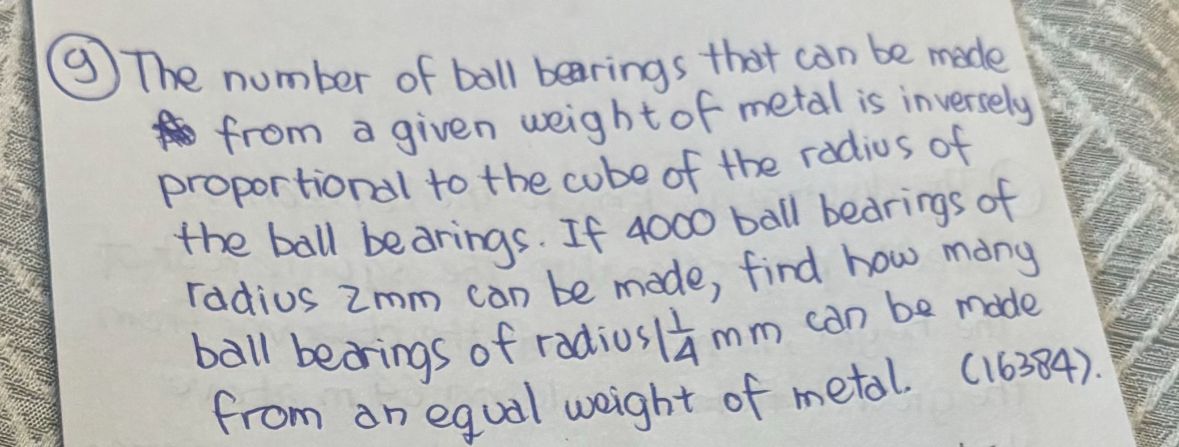 9) The number of ball bearings that can be made
from a given weight of metal is inversely
proportional to the cube of the radius of
the ball bearings. If 4000 ball bearings of
radius 2mm can be made, find how many
ball bearings of radius 1 1/4 mm can be made
from an equal weight of metal. (16384).